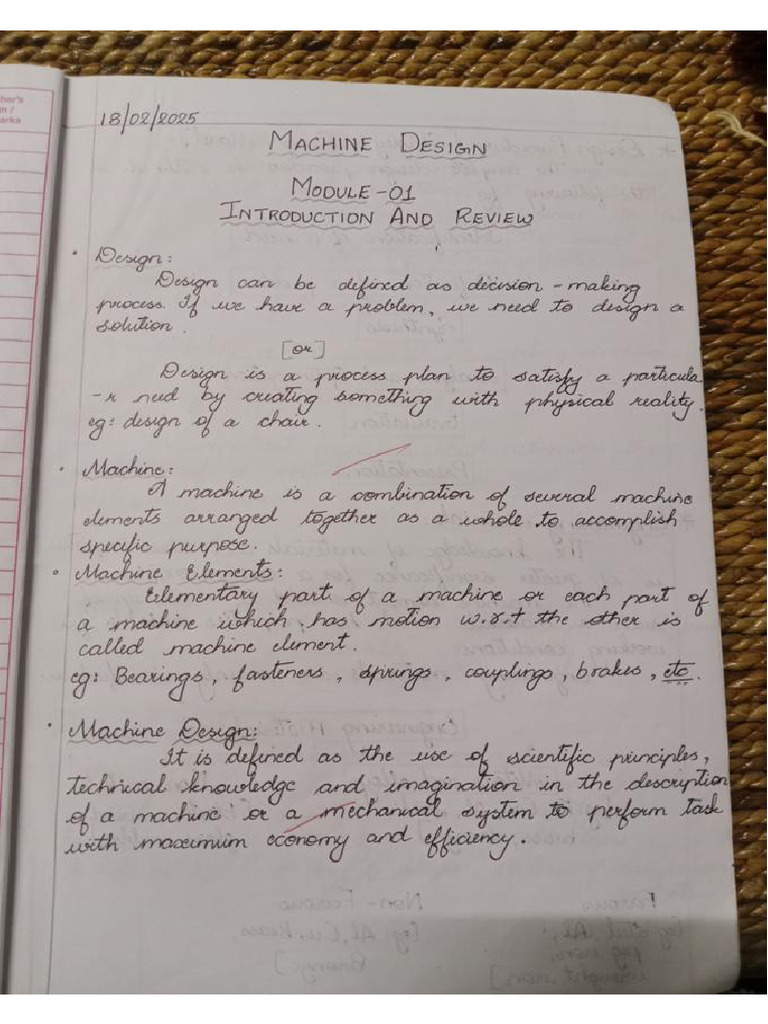 18/02/2025
MACHINE DESIGN
MODULE-01
INTRODUCTION AND REVIEW
• Design:
Design can be defined as decision-making
process. If we have a problem, we need to design a
solution.
[or]
Design is a process plan to satisfy a particula
-r need by creating something with physical reality.
eg: design of a chair.
• Machine:
A machine is a combination of several machine
elements arranged together as a whole to accomplish
specific purpose.
• Machine Elements:
Elementary part of a machine or each part of
a machine which has motion w.r.t the other is
called machine element.
eg: Bearings, fasteners, springs, couplings, brakes, etc.
• Machine Design:
It is defined as the use of scientific principles,
technical knowledge and imagination in the description
of a machine or a mechanical system to perform task
with maximum economy and efficiency.